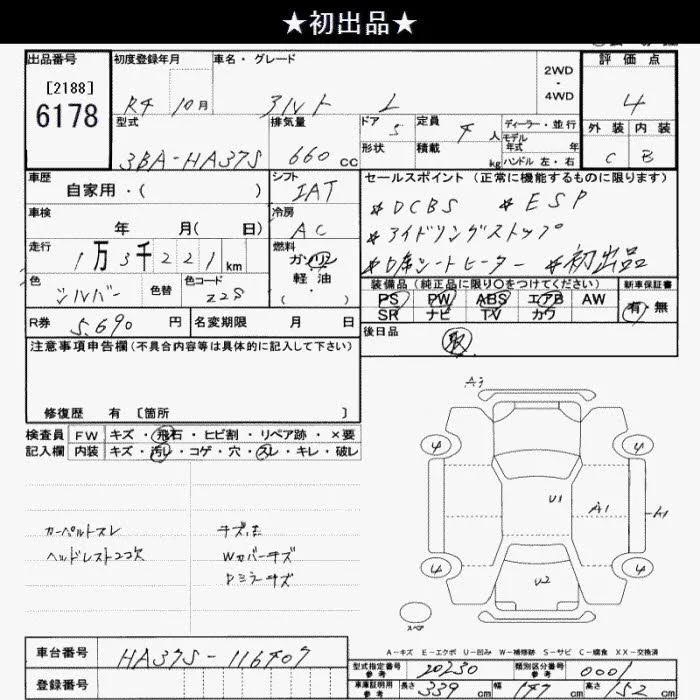 ★初出品★
出品番号 初度登録年月 車名・グレード 2WD・4WD 評価点
[2188]
6178 R4 10月 アルト L 4
型式 排気量 ドア 定員 ディーラー・並行 外装 内装
3BA-HA37S 660cc 5 4人 モデル年式 年 C B
形状 積載 kg ハンドル 左・右
車歴 シフト セールスポイント (正常に機能するものに限ります)
自家用・( ) IAT
＊DCBS ＊ESP
車検 冷房
年 月( 日) AC ＊アイドリングストップ
走行 燃料
1万3千221km ガソリン ＊D席シートヒーター ＊初出品
軽油
・( )
色 色替 色コード 装備品 (純正品に限り○をつけてください) 新車保証書
シルバー Z2S PS PW ABS エアB AW 有・無
SR ナビ TV カワ
R券 5,690円 名変期限 月 日 後日品 取
注意事項申告欄(不具合内容等は具体的に記入して下さい)
修復歴 有 〔箇所 〕
検査員 FW キズ・飛石・ヒビ割・リペア跡・×要
記入欄 内装 キズ・汚レ・コゲ・穴・スレ・キレ・破レ
A3
4 4
U1 A1 A1
カーペルトスレ キズ、凹
ヘッドレスト2コ欠 Wカバーキズ
Dミラーキズ
4 4
U2
スペア
A-キズ E-エクボ U-凹み W-補修跡 S-サビ C-腐食 XX-交換済
車台番号 HA37S-116407
登録番号
型式指定番号 参考 20230 類別区分番号 参考 0001
車庫証明用 参考 長さ 339cm 幅 147cm 高さ 152cm